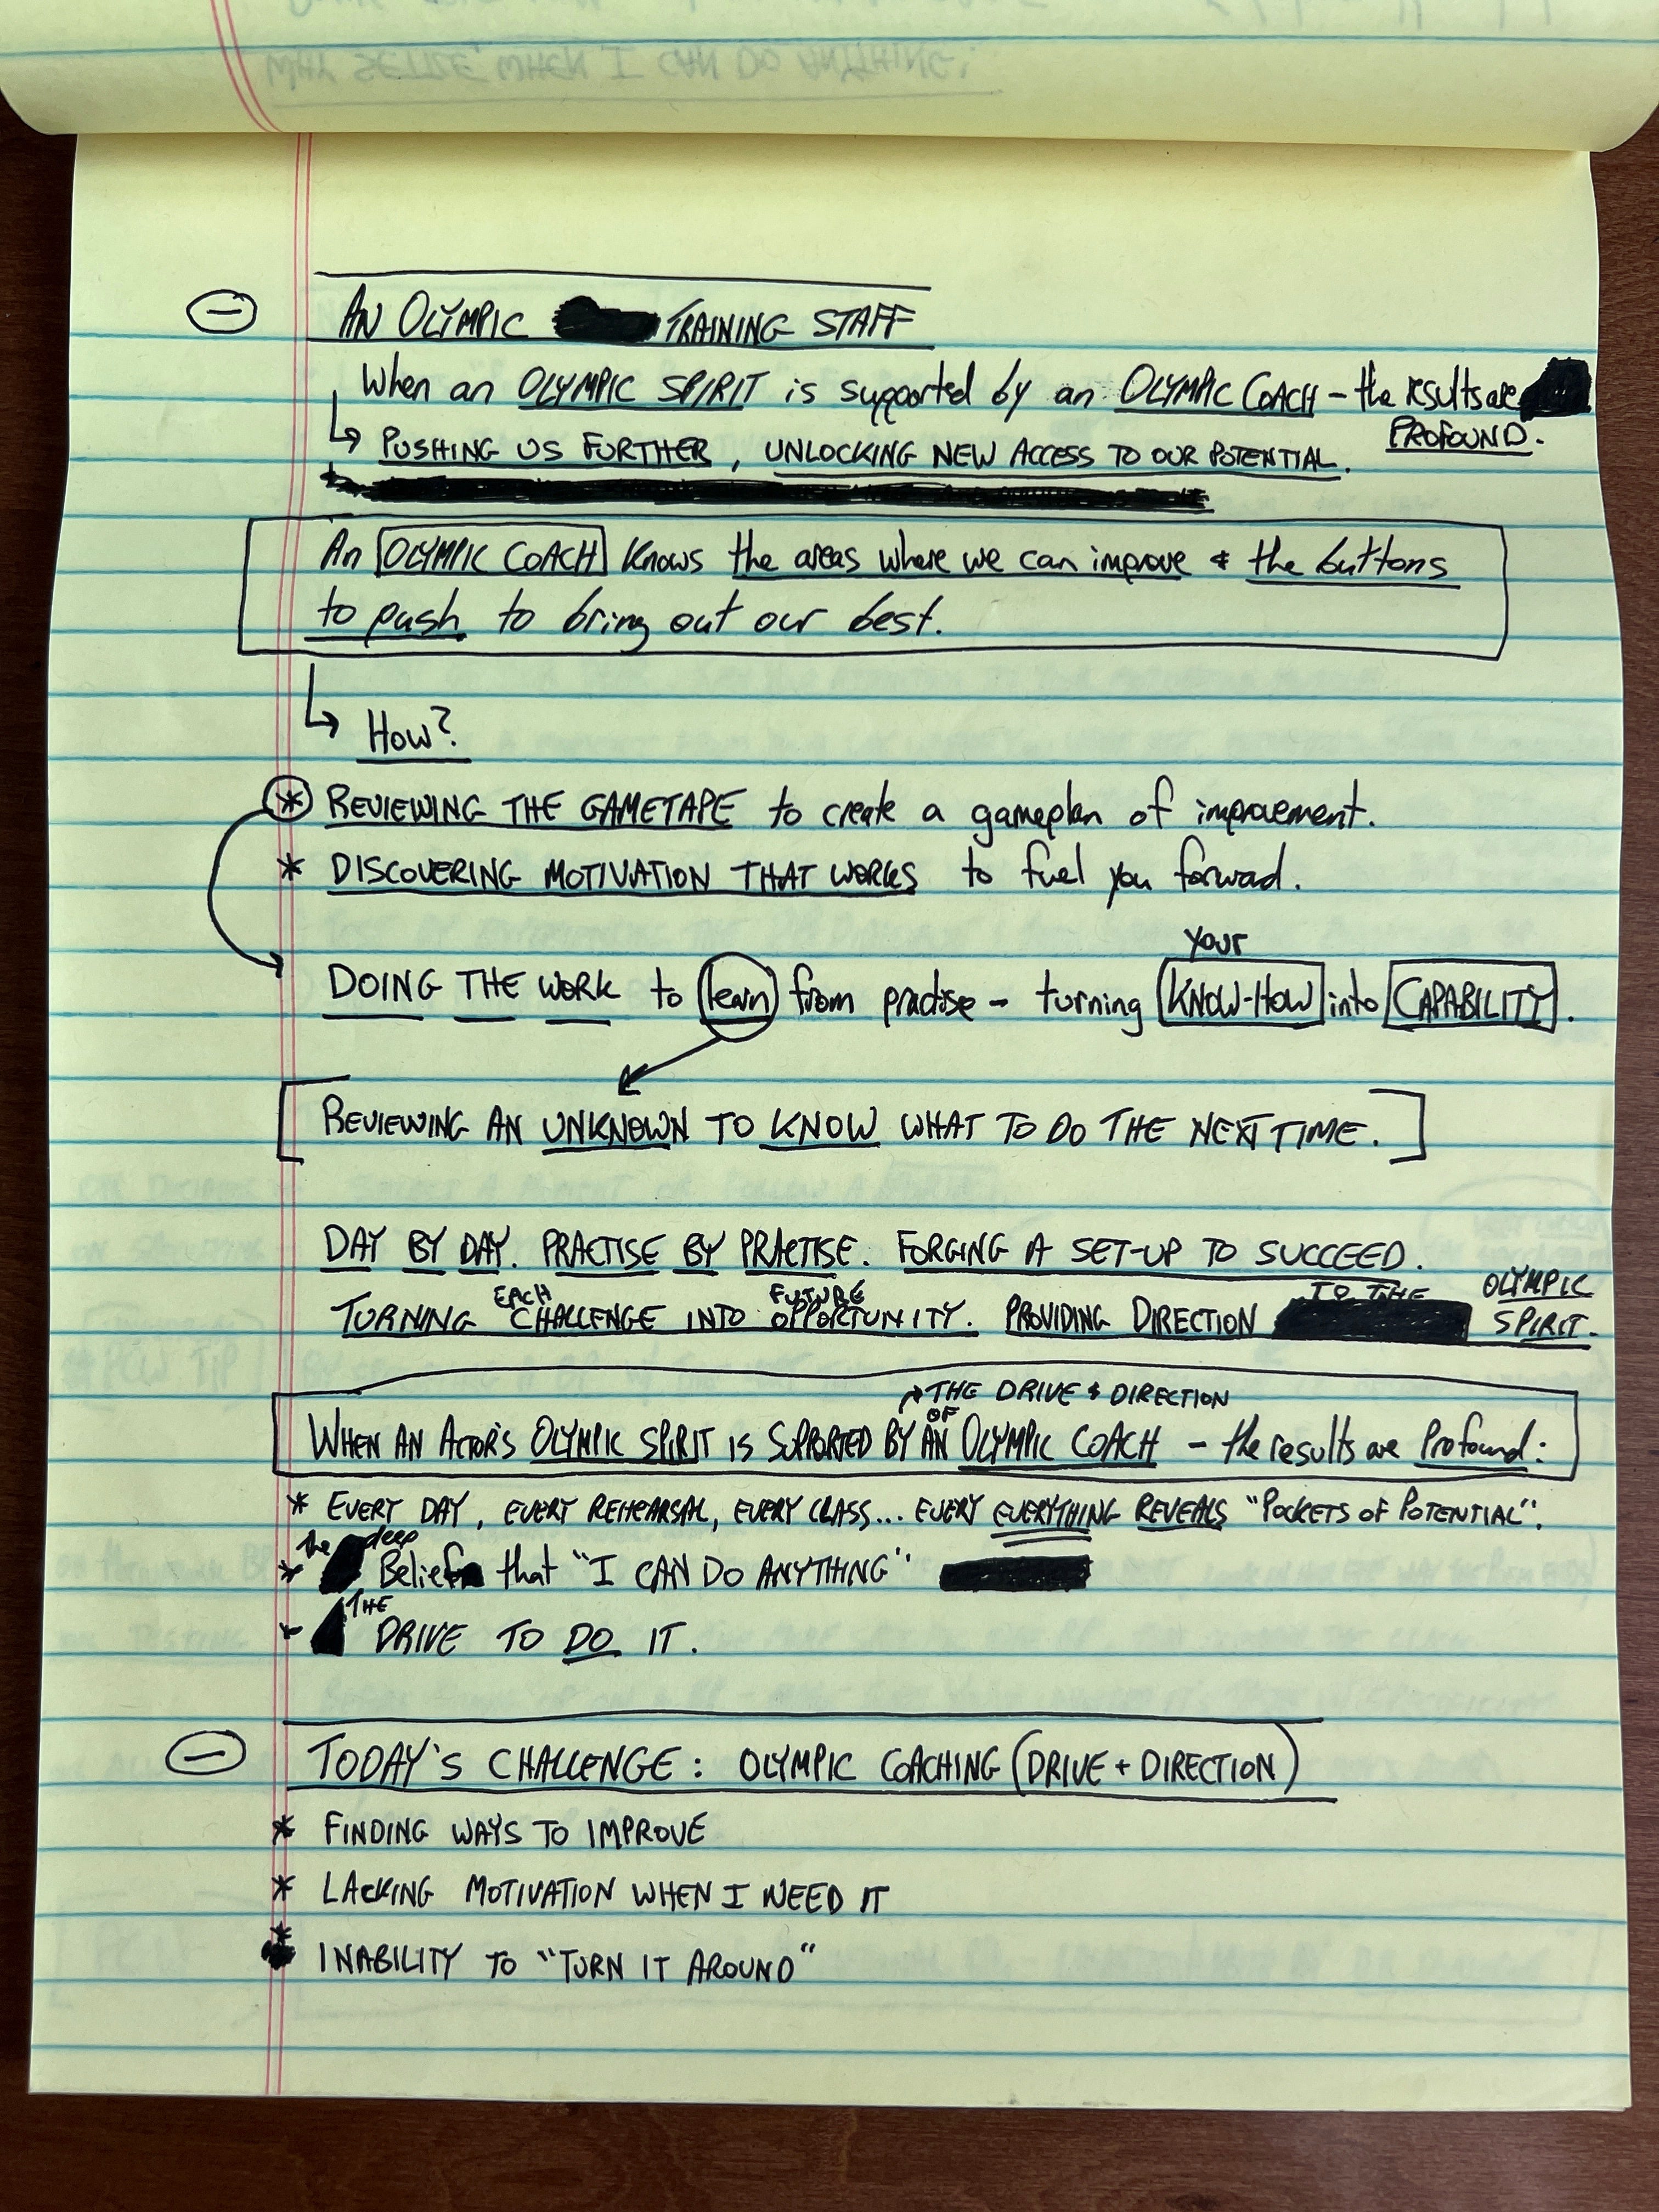 WHY SETTLE WHEN I CAN DO ANYTHING?
AN OLYMPIC TRAINING STAFF
When an OLYMPIC SPIRIT is supported by an OLYMPIC COACH - the results are
PROFOUND.
↳ PUSHING US FURTHER, UNLOCKING NEW ACCESS TO OUR POTENTIAL.
An OLYMPIC COACH knows the areas where we can improve & the buttons
to push to bring out our best.
↳ How?
* REVIEWING THE GAMETAPE to create a gameplan of improvement.
* DISCOVERING MOTIVATION THAT WORKS to fuel you forward.
DOING THE WORK to learn from practise - turning your KNOW-HOW into CAPABILITY.
[REVIEWING AN UNKNOWN TO KNOW WHAT TO DO THE NEXT TIME.]
DAY BY DAY. PRACTISE BY PRACTISE. FORGING A SET-UP TO SUCCEED.
TURNING EACH CHALLENGE INTO FUTURE OPPORTUNITY. PROVIDING DIRECTION TO THE OLYMPIC
SPIRIT.
WHEN AN ACTOR'S OLYMPIC SPIRIT IS SUPPORTED BY THE DRIVE & DIRECTION OF AN OLYMPIC COACH - the results are Profound:
* EVERY DAY, EVERY REHEARSAL, EVERY CLASS... EVERY EVERYTHING REVEALS "POCKETS OF POTENTIAL".
* the deep Belief that "I CAN DO ANYTHING"
* THE DRIVE TO DO IT.
TODAY'S CHALLENGE: OLYMPIC COACHING (DRIVE + DIRECTION)
* FINDING WAYS TO IMPROVE
* LACKING MOTIVATION WHEN I NEED IT
* INABILITY TO "TURN IT AROUND"